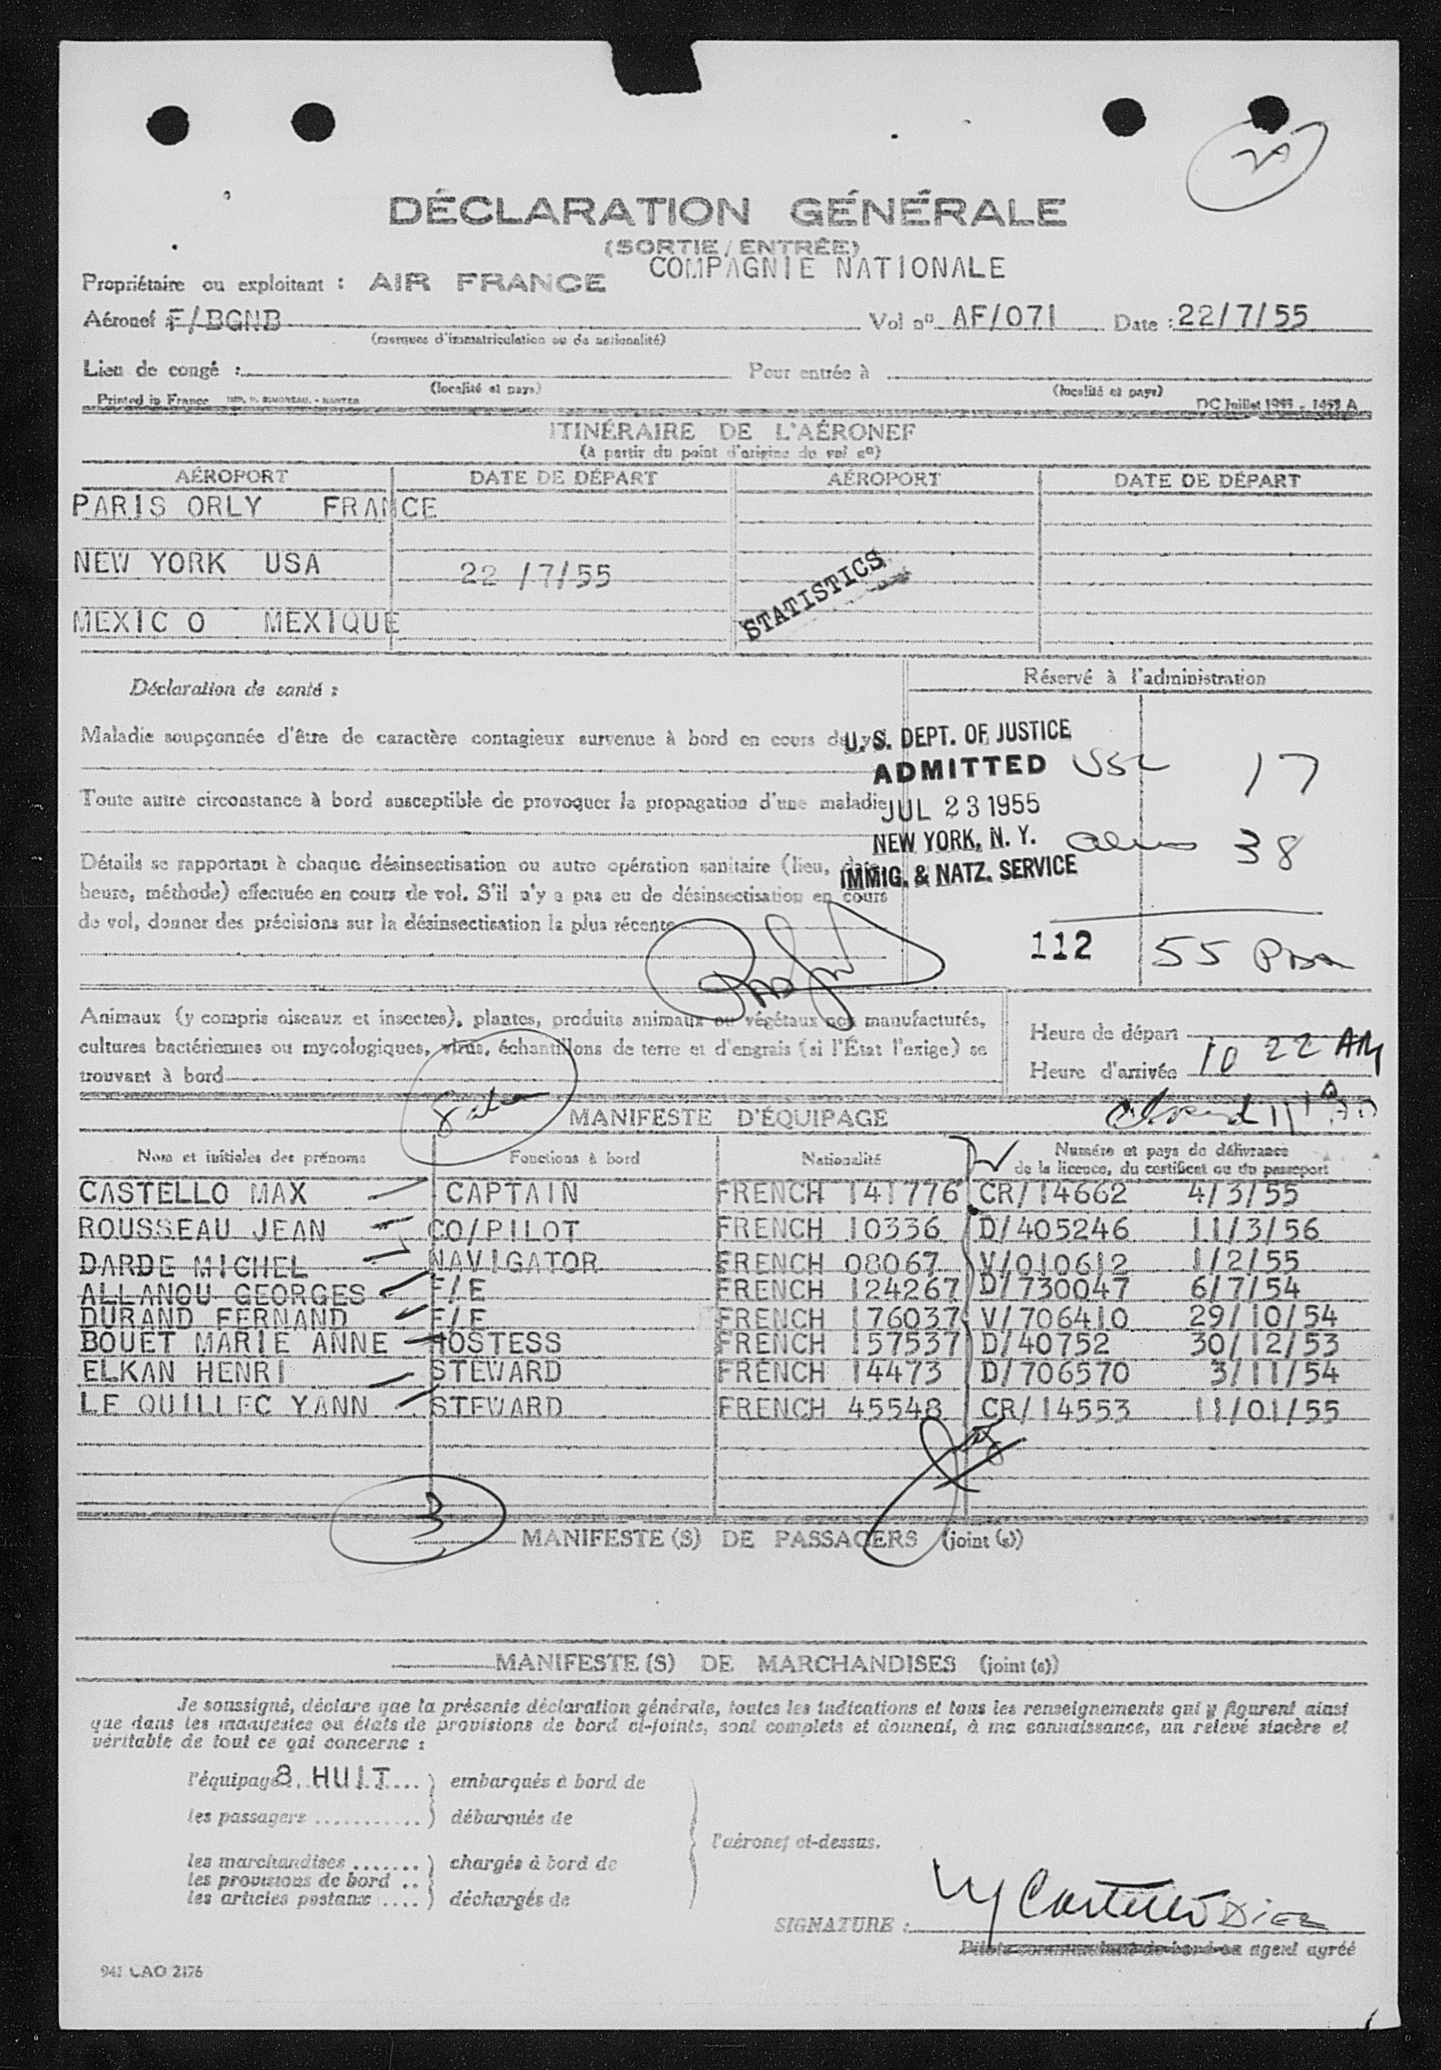 DÉCLARATION GÉNÉRALE
(SORTIE / ENTRÉE)
COMPAGNIE NATIONALE
Propriétaire ou exploitant : AIR FRANCE
Aéronef : F/BGNB Vol nº AF/071 Date : 22/7/55
(marques d'immatriculation ou de nationalité)
Lieu de congé : Pour entrée à
(localité et pays) (localité et pays)
Printed in France IMP. P. SIMONEAU. - NANTES DC Juillet 1953 - 1452 A
ITINÉRAIRE DE L'AÉRONEF
(à partir du point d'origine du vol nº)
AÉROPORT DATE DE DÉPART AÉROPORT DATE DE DÉPART
PARIS ORLY FRANCE
NEW YORK USA 22 /7/55
STATISTICS
MEXIC O MEXIQUE
Déclaration de santé : Réservé à l'administration
Maladie soupçonnée d'être de caractère contagieux survenue à bord en cours de
U. S. DEPT. OF JUSTICE
ADMITTED 17
Toute autre circonstance à bord susceptible de provoquer la propagation d'une maladie
JUL 23 1955
NEW YORK, N. Y. 38
IMMIG. & NATZ. SERVICE
Détails se rapportant à chaque désinsectisation ou autre opération sanitaire (lieu, date
heure, méthode) effectuée en cours de vol. S'il n'y a pas eu de désinsectisation en cours
de vol, donner des précisions sur la désinsectisation la plus récente
112 55
Animaux (y compris oiseaux et insectes), plantes, produits animaux ou végétaux non manufacturés,
cultures bactériennes ou mycologiques, virus, échantillons de terre et d'engrais (si l'État l'exige) se
trouvant à bord
Heure de départ
Heure d'arrivée 10 22 AM
MANIFESTE D'ÉQUIPAGE
Nom et initiales des prénoms Fonctions à bord Nationalité Numéro et pays de délivrance
de la licence, du certificat ou du passeport
CASTELLO MAX CAPTAIN FRENCH 141776 CR/14662 4/3/55
ROUSSEAU JEAN CO/PILOT FRENCH 10336 D/405246 11/3/56
DARDE MICHEL NAVIGATOR FRENCH 08067 V/010612 1/2/55
ALLANOU GEORGES F/E FRENCH 124267 D/730047 6/7/54
DURAND FERNAND F/E FRENCH 176037 V/706410 29/10/54
BOUET MARIE ANNE HOSTESS FRENCH 157537 D/40752 30/12/53
ELKAN HENRI STEWARD FRENCH 14473 D/706570 3/11/54
LE QUILLEC YANN STEWARD FRENCH 45548 CR/14553 11/01/55
3
MANIFESTE(S) DE PASSAGERS (joint (s))
MANIFESTE(S) DE MARCHANDISES (joint (s))
Je soussigné, déclare que la présente déclaration générale, toutes les indications et tous les renseignements qui y figurent ainsi
que dans les manifestes ou états de provisions de bord ci-joints, sont complets et donnent, à ma connaissance, un relevé sincère et
véritable de tout ce qui concerne :
l'équipage 8. HUIT .... ) embarqués à bord de
les passagers ........... ) débarqués de
l'aéronef ci-dessus.
les marchandises ....... ) chargés à bord de
les provisions de bord ..
les articles postaux .... ) déchargés de
SIGNATURE :
Pilote commandant de bord ou agent agréé
941 CAO 2176